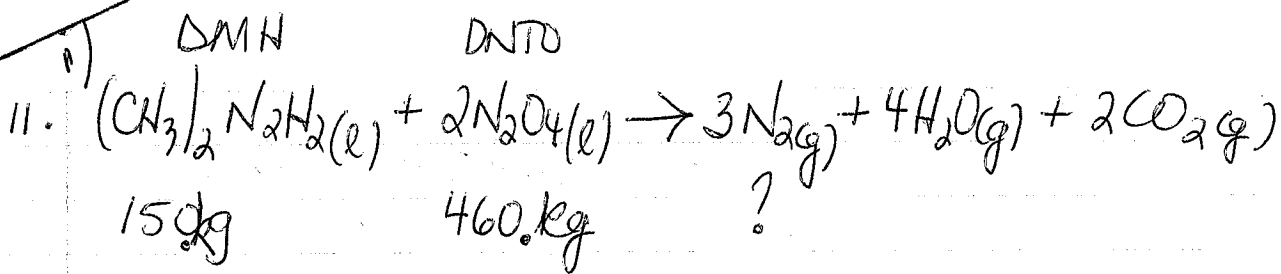 DMH DNTO
11. (CH₃)₂N₂H₂(l) + 2N₂O₄(l) → 3N₂(g) + 4H₂O(g) + 2CO₂(g)
150.kg 460.kg ?